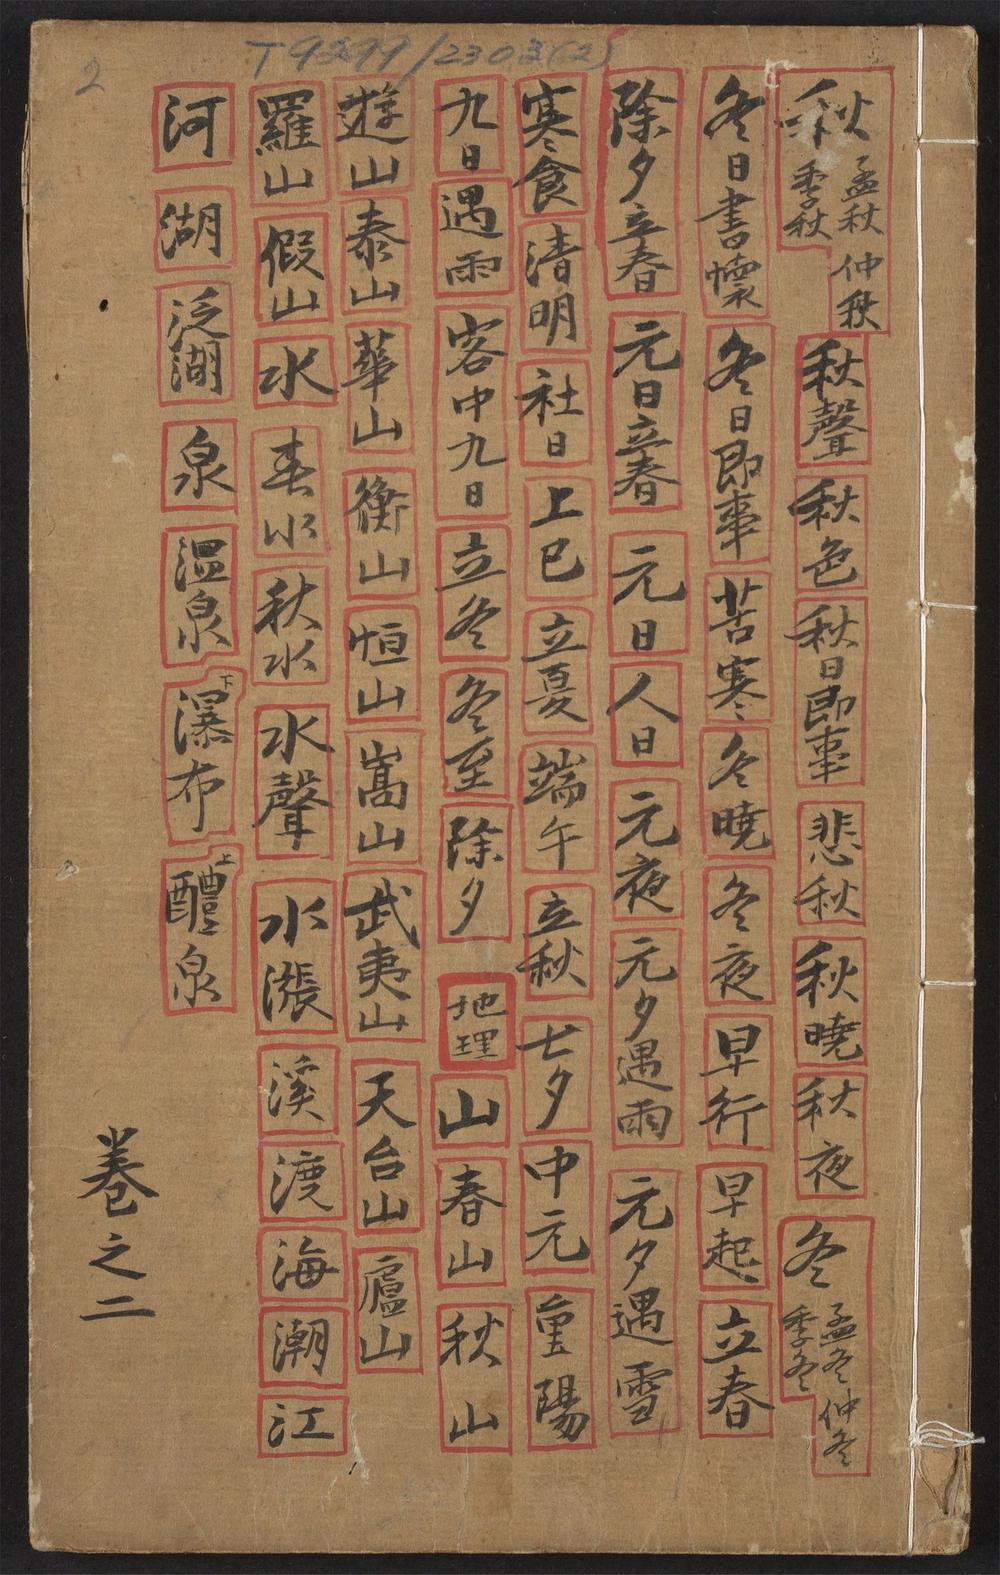 T9299/2303(2)
2
秋 孟秋 仲秋 季秋 秋聲 秋色 秋日即事 悲秋 秋曉 秋夜 冬 孟冬 仲冬 季冬
冬日書懷 冬日即事 苦寒 冬曉 冬夜 早行 早起 立春
除夕立春 元日立春 元日 人日 元夜 元夕遇雨 元夕遇雪
寒食 清明 社日 上巳 立夏 端午 立秋 七夕 中元 重陽
九日 遇雨 客中九日 立冬 冬至 除夕 地理 山 春山 秋山
遊山 泰山 華山 衡山 恒山 嵩山 武夷山 天台山 廬山
羅山 假山 水 春水 秋水 水聲 水漲 溪 渡 海 潮 江
河 湖 泛湖 泉 溫泉 下 瀑布 上 醴泉
卷之二